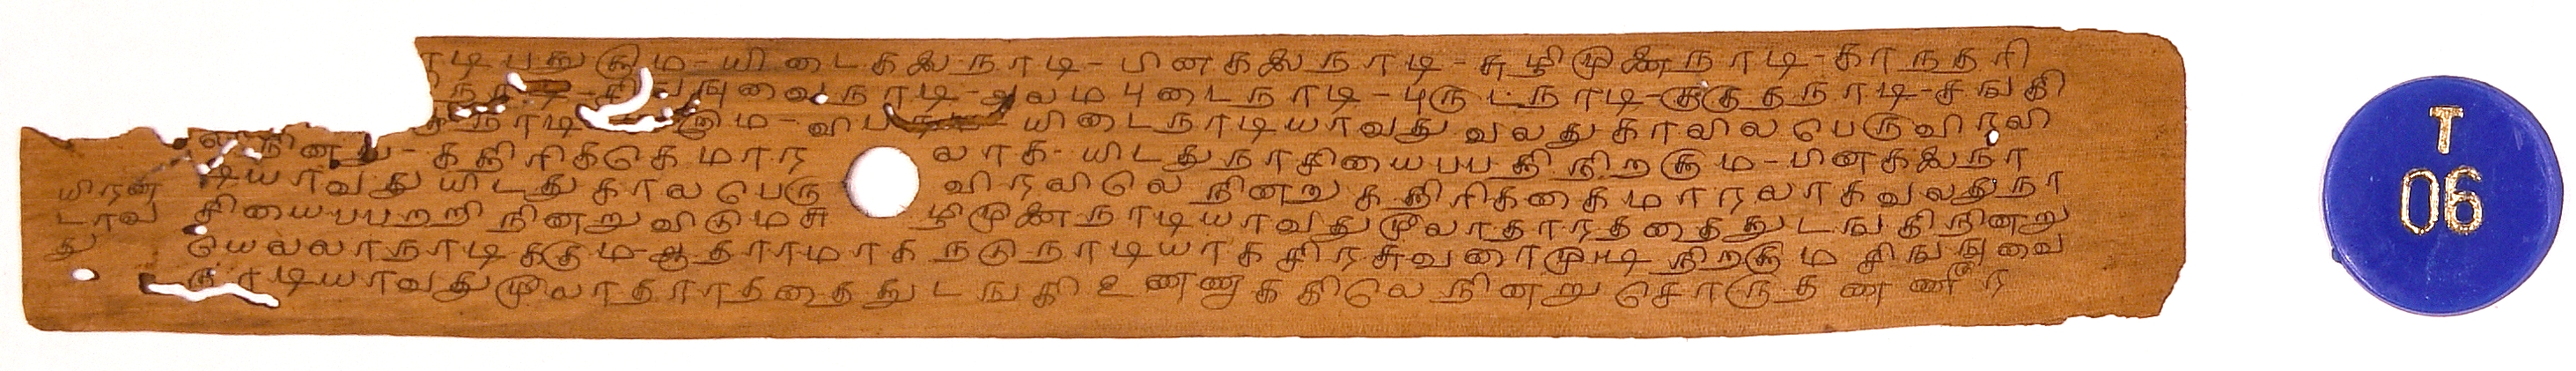 ாடிபததுகும-யிடைகலைநாடி-பினகலைநாடி-சுழிமுனைநாடி-காநதாரி
சிஙஙுவைநாடி-அலமபுடைநாடி-புருடநாடி-குகுதநாடி-சஙகி
நாடி யிடைநாடியாவதுவலதுகாலிலபெருவிரலி
நினறு-கததிரிக்கெமாற லாக-யிடதுநாசியைபபததிநிறகும-பினகலைநா
டியாவதுயிடதுகாலபெரு விரலிலெநினறுகததிரிக்கைமாறலாகவலதுநா
சியைபபறறிநினறுவிடுமசு ழிமுனைநாடியாவதுமூலாதாரததைதுடஙகிநினறு
யெலலாநாடிககும-ஆதாரமாகநடுநாடியாகசிரசுவரைமுடிநிறகுமசிஙஙுவை
டியாவதுமூலாதாரததைதுடஙகிஉணணாககிலெநினறுசொருதணணீர
யிரண
டாவ
து
T
06